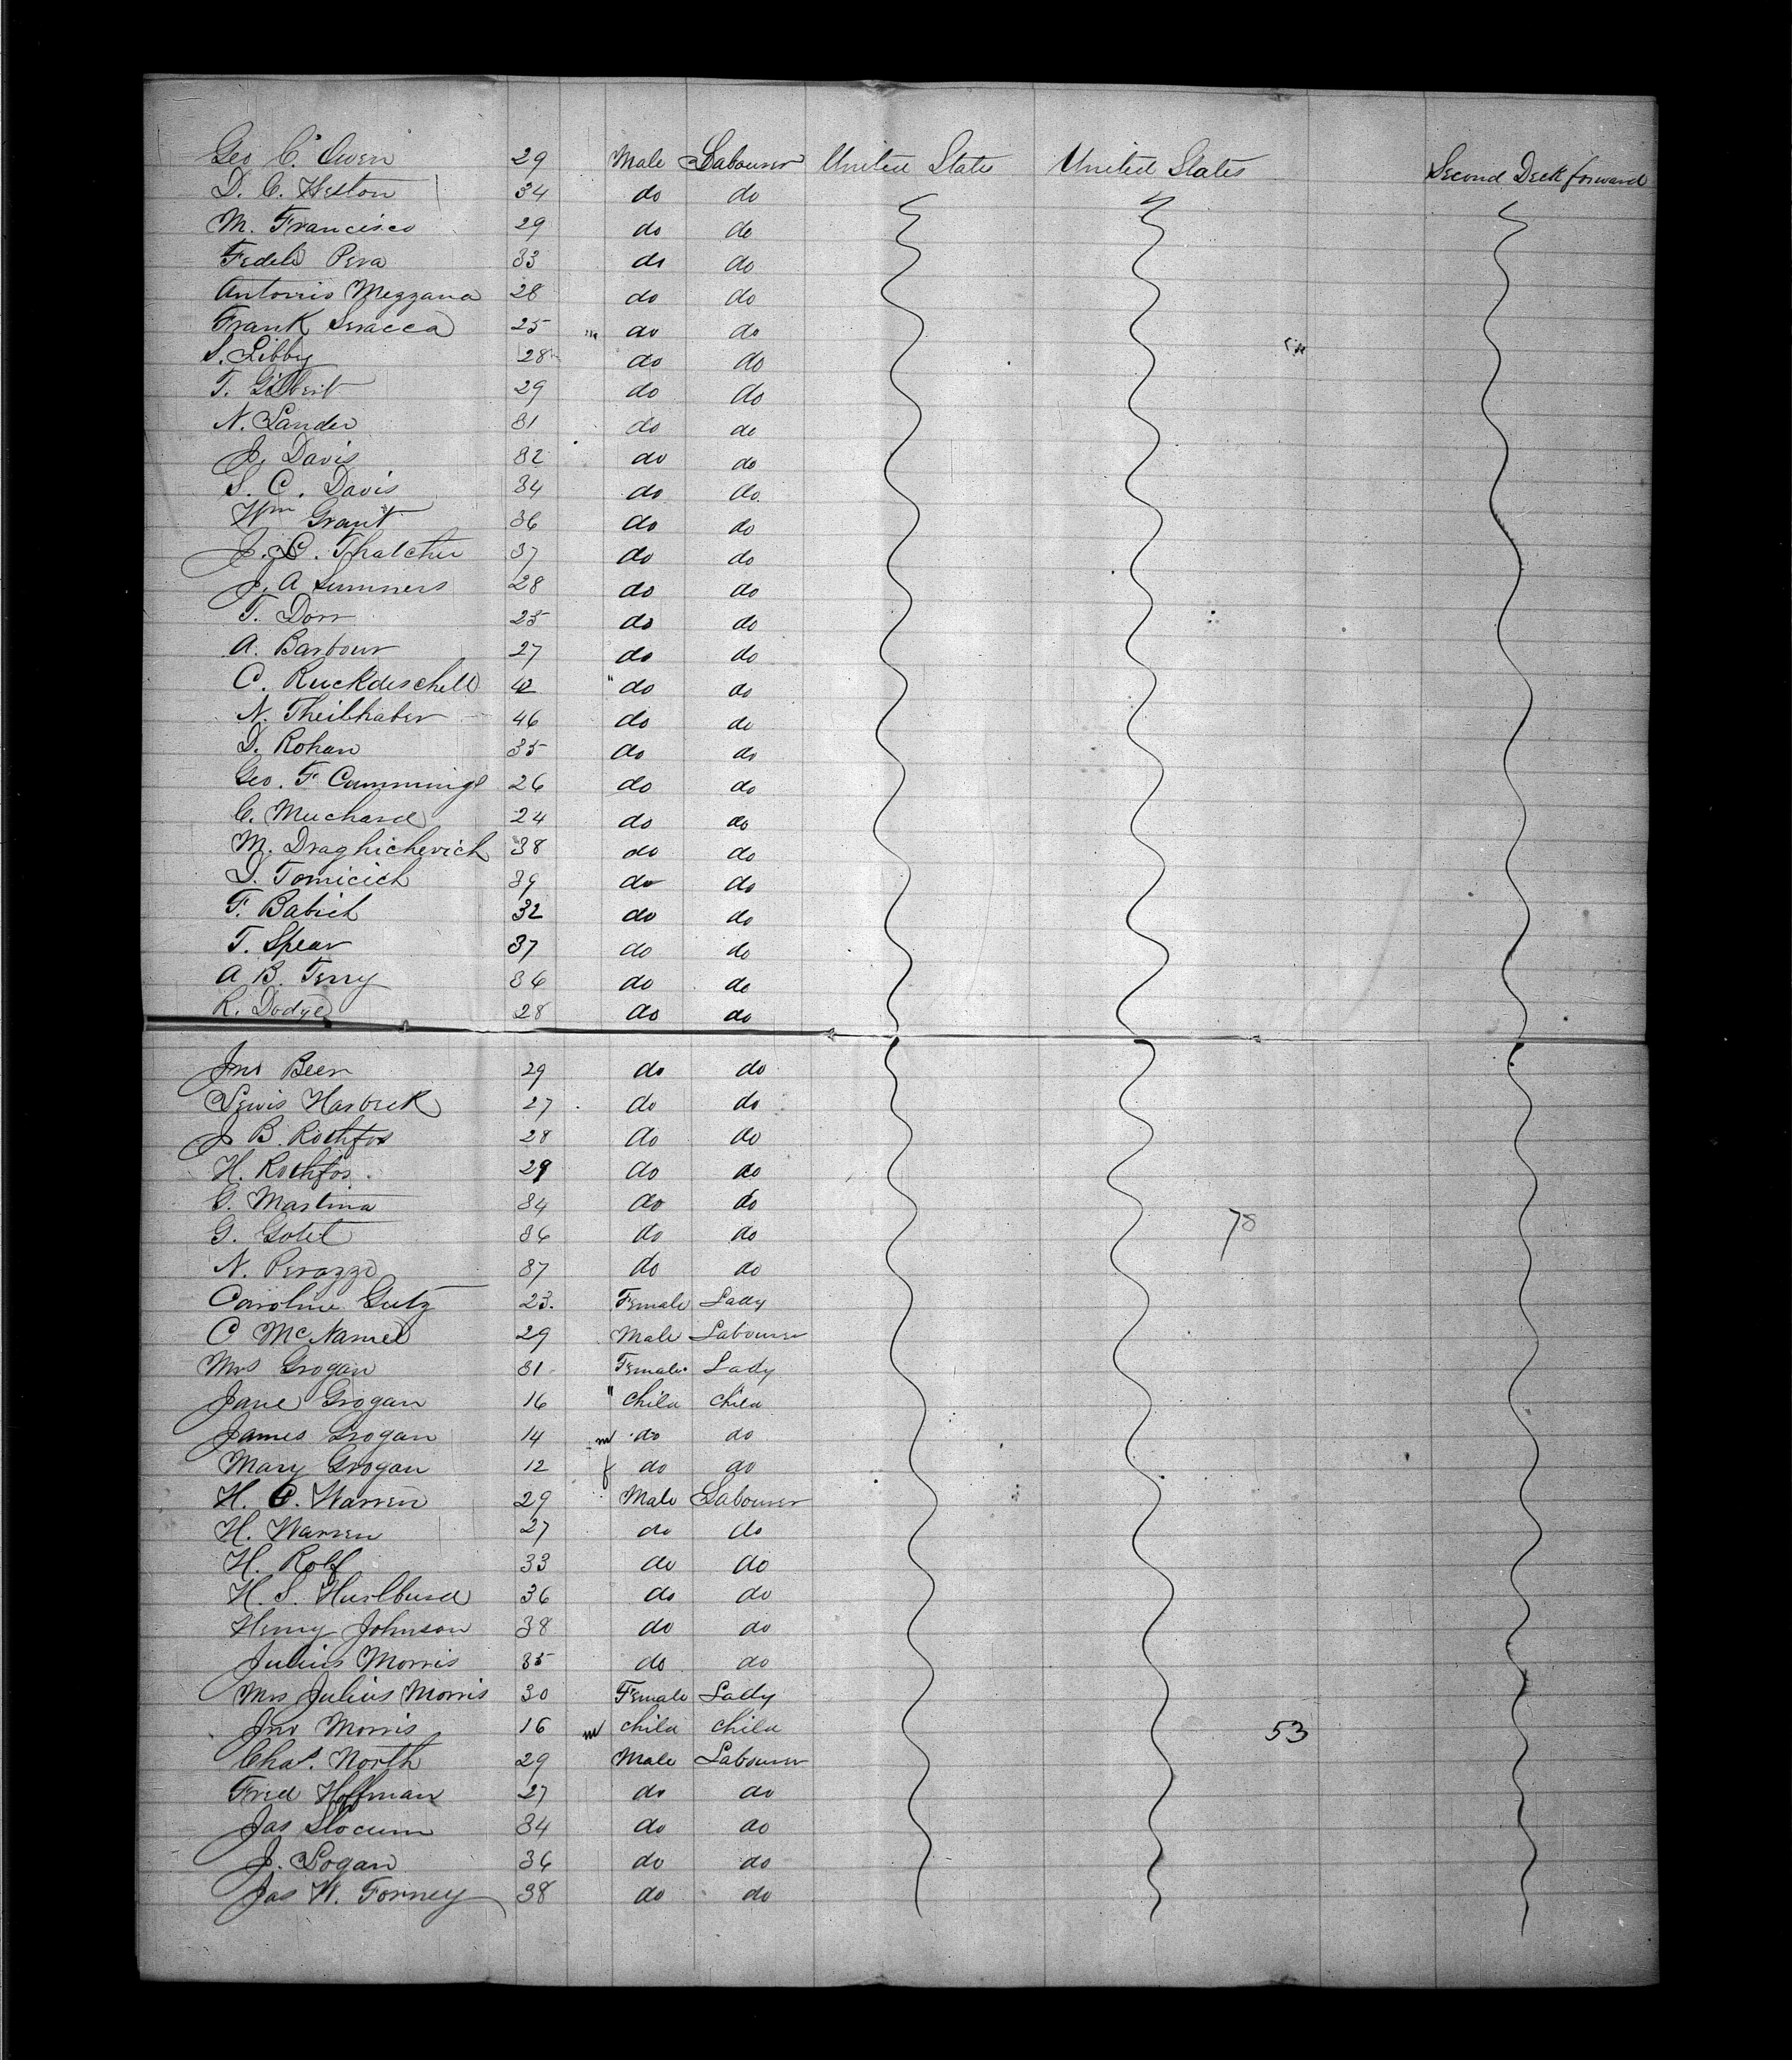 Geo C. Owen 29 Male Labourer United State United States Second Deck forward
D. C. Heston 34 do do
M. Francisco 29 do do
Fedele Pera 33 do do
Antonio Mezzana 28 do do
Frank Seracca 25 do do
S. Libby 28 do do
T. Gilbert 29 do do
N. Lander 31 do do
J. Davis 32 do do
S. C. Davis 34 do do
Wm Grant 36 do do
J. C. Thatcher 37 do do
J. A Summers 28 do do
T. Dorr 25 do do
A. Barbour 27 do do
C. Ruckdeschell 42 " do do
N. Theilhaber 46 do do
D. Rohan 35 do do
Geo. F Cummings 26 do do
C. Muchard 24 do do
M. Draghichevich 38 do do
D. Tomicich 39 do do
F. Babich 32 do do
T. Spear 37 do do
A B. Terry 36 do do
R. Dodge 28 do do
Jno Beer 29 do do
Lewis Harbeck 27 do do
J B. Rothfos 28 do do
H. Rothfos 29 do do
G. Mastina 34 do do
G. Golet 36 do do 78
N. Perazzo 37 do do
Caroline Gutz 23. Female Lady
C McNamee 29 Male Labourer
Mrs Grogan 31 Female Lady
Jane Grogan 16 " child child
James Grogan 14 m do do
Mary Grogan 12 f do do
H. C. Warren 29 Male Labourer
H. Warren 27 do do
H. Rolf 33 do do
H. S. Hurlburd 36 do do
Henry Johnson 38 do do
Julius Morris 35 do do
Mrs Julius Morris 30 Female Lady
Jno Morris 16 m child child 53
Chas. North 29 Male Labourer
Fred Hoffman 27 do do
Jas Slocum 34 do do
J. Logan 36 do do
Jas W. Forney 38 do do